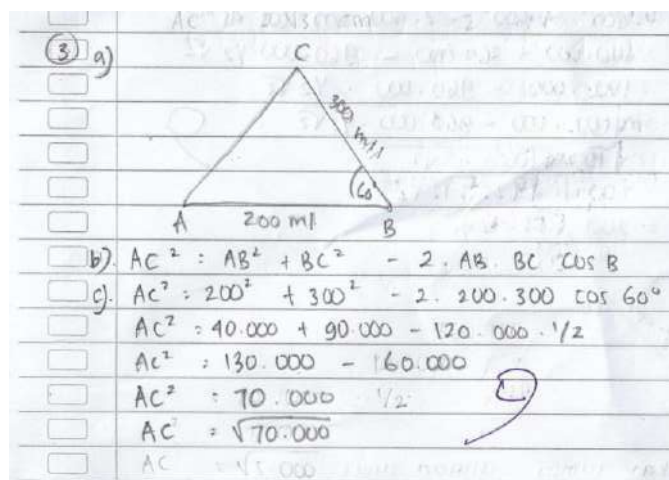 3 a)
C
300 mil
60°
A 200 mil B
b). AC² = AB² + BC² - 2. AB. BC cos B
c). AC² = 200² + 300² - 2. 200. 300 cos 60°
AC² = 40.000 + 90.000 - 120.000 . 1/2
AC² = 130.000 - 60.000
AC² = 70.000
AC = √70.000